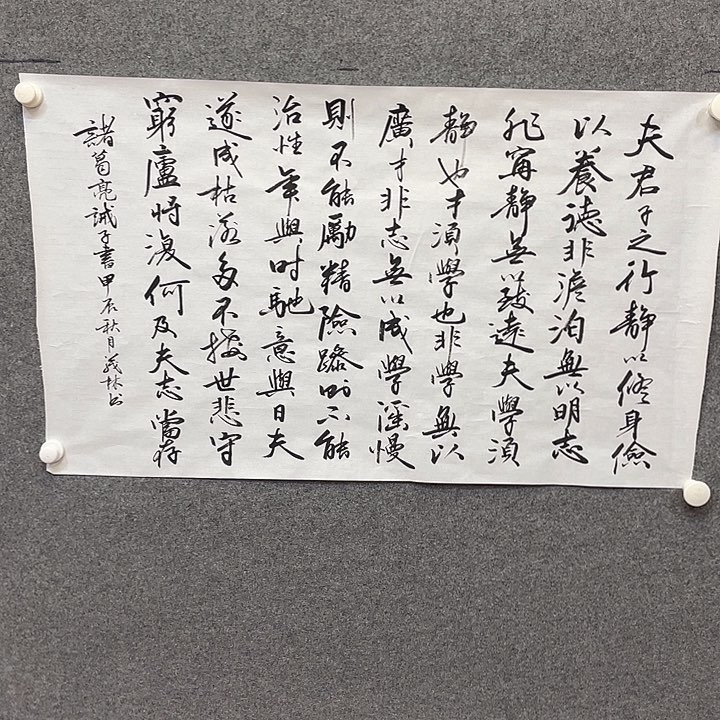 夫君子之行静以修身儉
以養德非澹泊無以明志
非寧静無以致遠夫學須
静也才須學也非學無以
廣才非志無以成學滛慢
則不能勵精險躁則不能
治性年與時馳意與日夫
遂成枯落多不接世悲守
窮廬將復何及夫志當存
諸葛亮誡子書甲辰秋月義林书